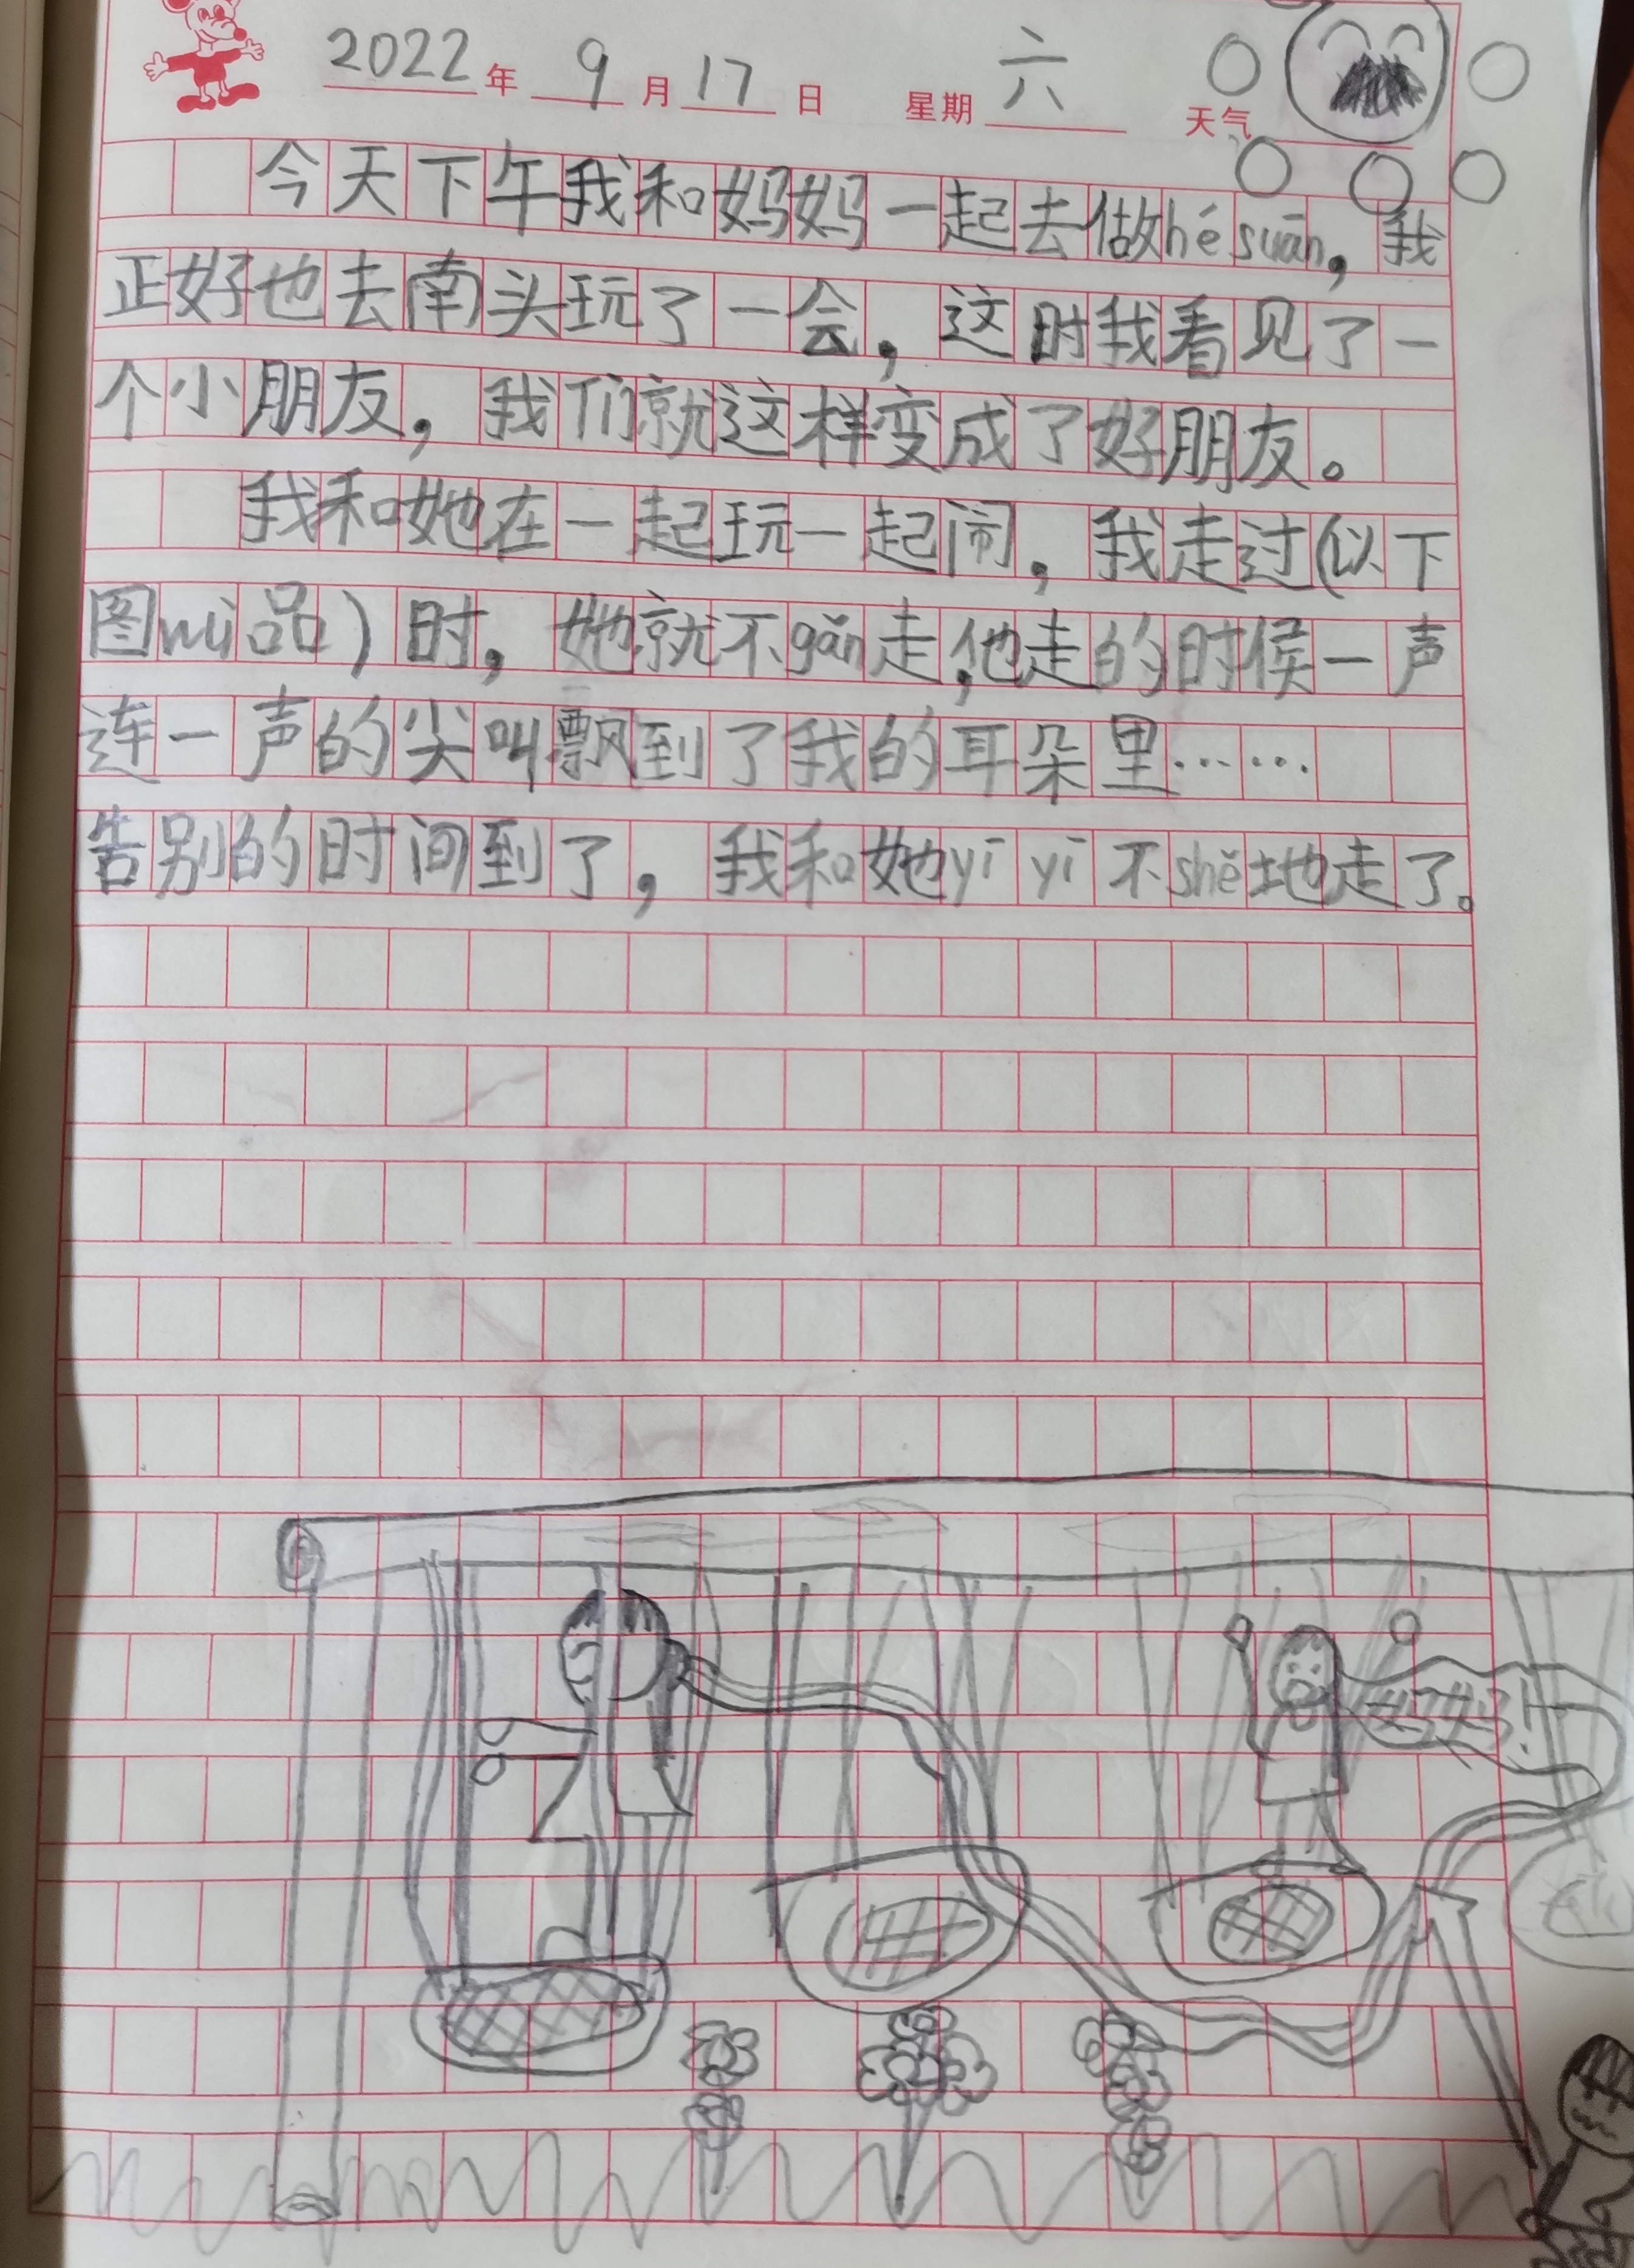 2022年 9月17日 星期六 天气
今天下午我和妈妈一起去做hé suān，我
正好也去南头玩了一会，这时我看见了一
个小朋友，我们就这样变成了好朋友。
我和她在一起玩一起闹，我走过(以下
图wù品)时，她就不gǎn走，他走的时候一声
连一声的尖叫飘到了我的耳朵里……
告别的时间到了，我和她yī yī不shě地走了。
妈妈!